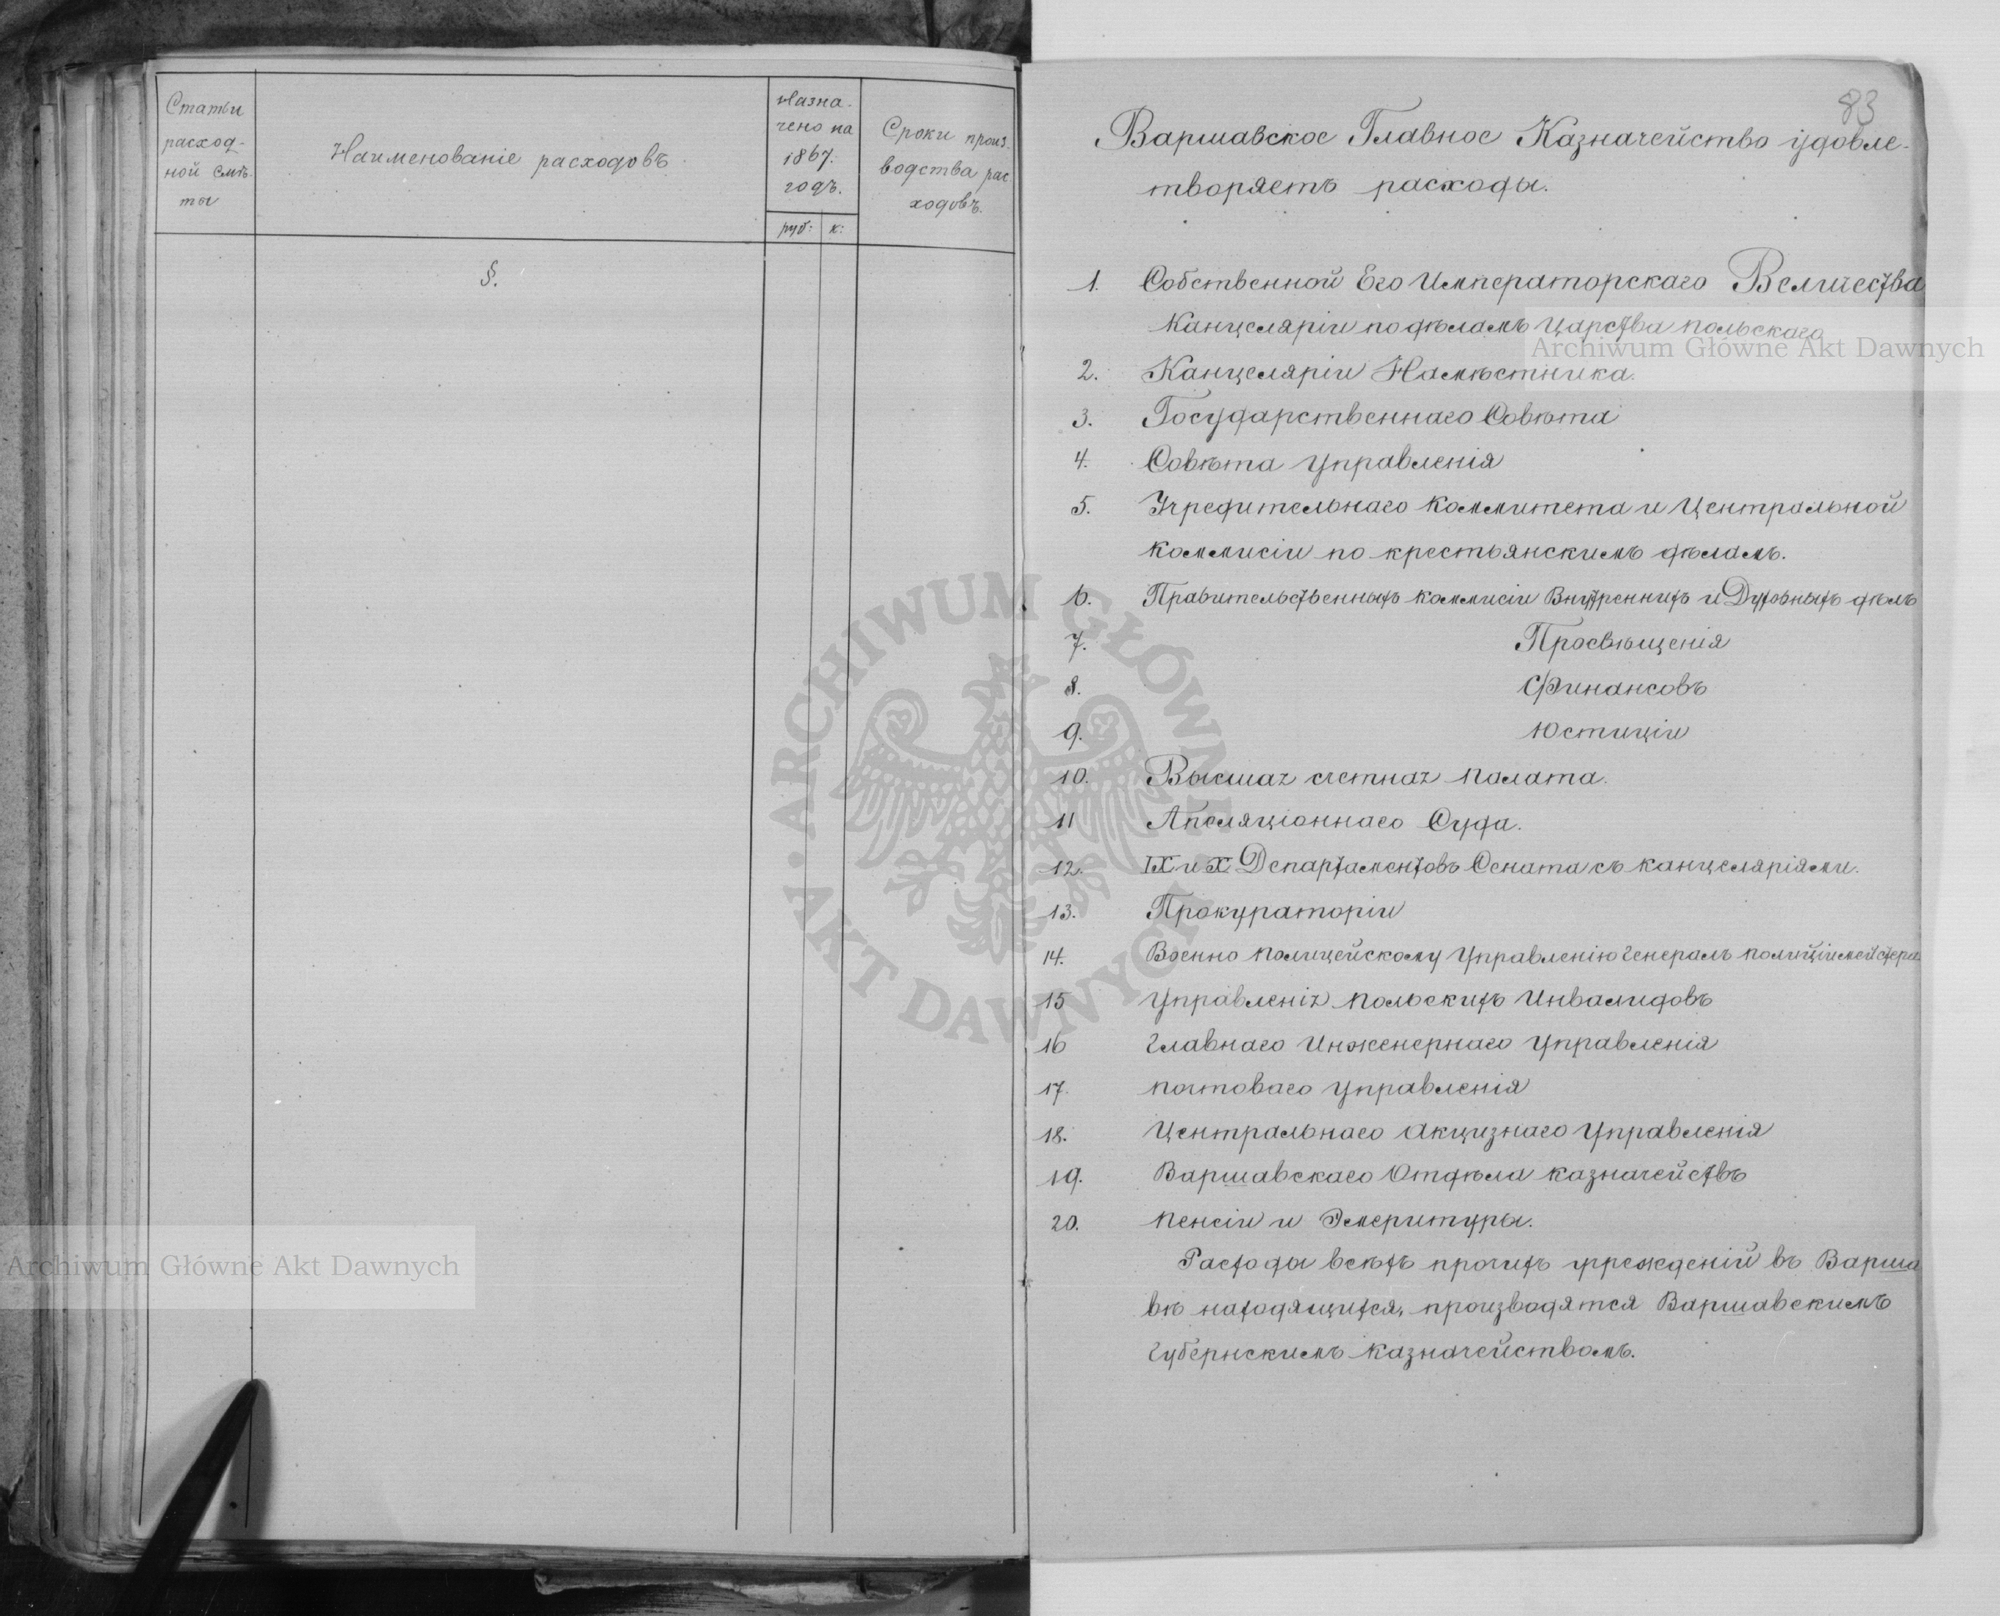 Статьи
расход-
ной смѣ-
ты
Наименованіе расходовъ.
Назна-
чено на
1867.
годъ.
руб: к:
Сроки произ-
водства рас
ходовъ.
§.
83
Варшавское Главное Казначейство удовле-
творяетъ расходы.
1. Собственной Его Императорскаго Величества
Канцеляріи по дѣламъ Царства Польскаго
2. Канцеляріи Намѣстника.
3. Государственнаго Совѣта
4. Совѣта Управленія
5. Учредительнаго Коммитета и Центральной
Коммисіи по крестьянскимъ дѣламъ.
6. Правительственныхъ Коммисіи Внутреннихъ и Духовныхъ дѣлъ
7. Просвѣщенія
8. Финансовъ
9. Юстиціи
10. Высшая счетная Палата.
11 Апеляціоннаго Суда.
12. IX и X Департаментовъ Сената съ канцеляріями.
13. Прокураторіи
14. Военно Полицейскому Управленію Генералъ Полиціймейстера
15 Управленія Польскихъ Инвалидовъ
16 Главнаго Инженернаго Управленія
17. Почтоваго Управленія
18. Центральнаго Акцизнаго Управленія
19. Варшавскаго Отдѣла Казначействъ
20. Пенсіи и Эмеритуры.
Расходы всѣхъ прочихъ учрежденій въ Варша
вѣ находящихся, производятся Варшавскимъ
Губернскимъ Казначействомъ.
Archiwum Główne Akt Dawnych
Archiwum Główne Akt Dawnych
ARCHIWUM GŁÓWNE AKT DAWNYCH